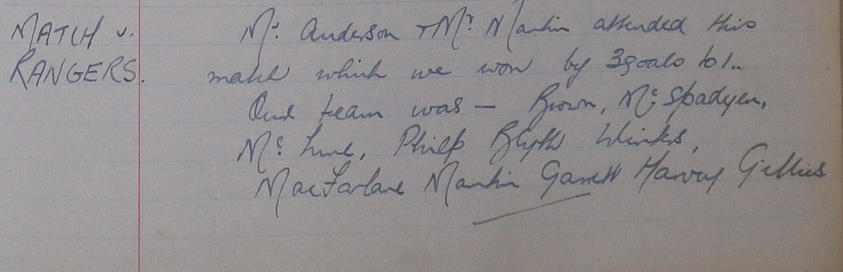 MATCH v.
RANGERS.
Mr. Anderson & Mr. Martin attended this
match which we won by 3 goals to 1..
Our team was — Brown, Mc. Spadyen,
Mc. Lure, Philp Blyth Winks,
MacFarlane Martin Garrett Harvey Gillies